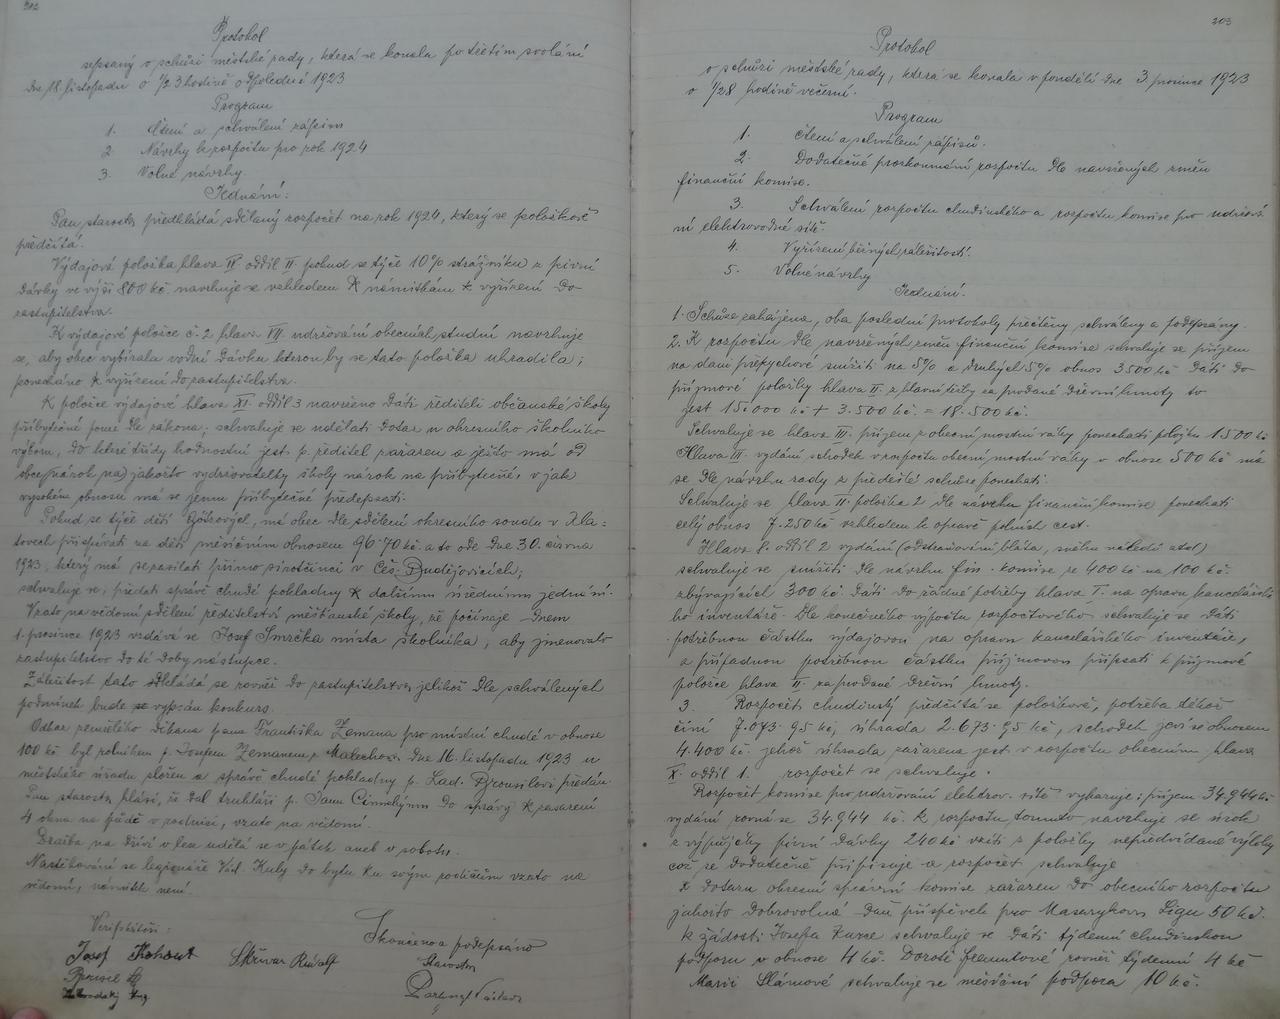 202
Protokol
sepsaný o schůzi městské rady, která se konala po třetím svolání
dne 18. listopadu o 1/2 3 hodině odpolední 1923
Program
1. Čtení a schválení zápisu
2. Návrhy k rozpočtu pro rok 1924
3. Volné návrhy.
Jednání:
Pan starosta předkládá sdělaný rozpočet na rok 1924, který se položkově
předčítá.
Výdajová položka hlava II oddíl II pokud se týče 10% strážníku z pivní
dávky ve výši 800 kč navrhuje se vzhledem k námitkám k vyřízení do
zastupitelstva.
K výdajové položce č. 2 hlava VII udržování obecních studní navrhuje
se, aby obec vybírala vodní dávku kterou by se tato položka uhradila;
ponecháno k vyřízení do zastupitelstva.
K položce výdajové hlava XI oddíl 3 navrženo dáti řediteli občanské školy
příbytečné pouze dle zákona; schvaluje se udělati dotaz u okresního školního
výboru, do které třídy hodnostní jest p. ředitel zařazen a ježto má od
obce (nárok na) jakožto vydržovatelky školy nárok na příbytečné, v jak
vysokém obnosu má se jemu příbytečné předepsati.
Pokud se týče dětí má obec dle sdělení okresního soudu v Kla=
tovech přispívati na děti měsíčním obnosem 96.70 kč a to ode dne 30. června
1923, který má se zasílati přímo sirotčinci v Čes. Budějovicích;
schvaluje se, předati správě chudé pokladny k dalšímu úřednímu jednání.
Vzato na vědomí sdělení ředitelství měšťanské školy, že počínaje dnem
1. prosince 1923 vzdává se Josef Smrčka místa školníka, aby jmenovalo
zastupitelstvo do té doby nástupce.
Záležitost tato odkládá se rovněž do zastupitelstva jelikož dle schválených
podmínek bude se vypsán konkurs.
Odkaz zemřelého děkana pana Františka Zemana pro místní chudé v obnose
100 kč byl rolníkem p. Josefem Zemanem z Malechova dne 16. listopadu 1923 u
městského úřadu složen a správě chudé pokladny p. Lad. Brousilovi předán
Pan starosta hlásí, že dal truhláři p. Janu Cimickýmu do správy k zasazení
4 okna na půdě v radnici, vzato na vědomí.
Dražba na dříví v lese udělá se v pátek aneb v sobotu.
Nastěhování se legionáře Václ. Kuby do bytu ku svým rodičům vzato na
vědomí, námitek není.
Verifikátoři:
Skončeno a podepsáno
Josef Kohout
Skřivan Rudolf
Starosta
203
Protokol
o schůzi městské rady, která se konala v pondělí dne 3. prosince 1923
o 1/2 8 hodině večerní.
Program
1. Čtení a schválení zápisů.
2. Dodatečné prozkoumání rozpočtu dle navržených změn
finanční komise.
3. Schválení rozpočtu chudinského a rozpočtu komise pro udržová
ní elektrovodné sítě.
4. Vyřízení běžných záležitostí.
5. Volné návrhy
Jednání.
1. Schůze zahájena, oba poslední protokoly přečteny schváleny a podepsány.
2. K rozpočtu dle navržených změn finanční komise schvaluje se příjem
na dani přepychové snížiti na 5% a druhých 5% obnos 3500 kč dáti do
příjmové položky hlava II. z hlavní těžby za prodané dřevní hmoty to
jest 15.000 kč + 3.500 kč. = 18.500 kč.
Schvaluje se hlava III. příjem z obecní mostní váhy ponechati položku 1500 kč
Hlava III. vydání schodek v rozpočtu obecní mostní váhy v obnose 500 kč má
se dle návrhu rady z předešlé schůze ponechati.
Schvaluje se hlava II. položka 2 dle návrhu finanční komise ponechati
celý obnos 7.250 kč vzhledem k opravě polních cest.
Hlava 8. oddíl 2 vydání (odstraňování bláta, sněhu náledí atd)
schvaluje se snížiti dle návrhu fin. komise ze 400 kč na 100 kč.
zbývajících 300 kč dáti do řádné potřeby hlava I. na opravu kancelářské
ho inventáře. Dle konečného výpočtu rozpočtového schvaluje se dáti
potřebnou částku výdajovou na opravu kancelářského inventáře,
a případnou potřebnou částku příjmovou připsati k příjmové
položce hlava II. za prodané dřevní hmoty.
3. Rozpočet chudinský předčítá se položkově, potřeba téhož
činí 7.073.95 kč, úhrada 2.673.95 kč, schodek jeví se obnosem
4.400 kč. jehož úhrada zařazena jest v rozpočtu obecním hlava
X. oddíl 1. rozpočet se schvaluje.
Rozpočet komise pro udržování elektrov. sítě vykazuje: příjem 34.944 kč
vydání rovná se 34.944 kč. k rozpočtu tomuto navrhuje se úrok
z výpůjčky pivní dávky 240 kč vzíti z položky nepředvídané výlohy
což se dodatečně připisuje a rozpočet schvaluje
K dotazu okresní správní komise zařazen do obecního rozpočtu
jakožto dobrovolná daň příspěvek pro Masarykovu Ligu 50 kč.
K žádosti Josefa schvaluje se dáti týdenní chudinskou
podporu v obnose 4 kč. Dorotě rovněž týdenní 4 kč
Marii Slámové schvaluje se měsíční podpora 10 kč.